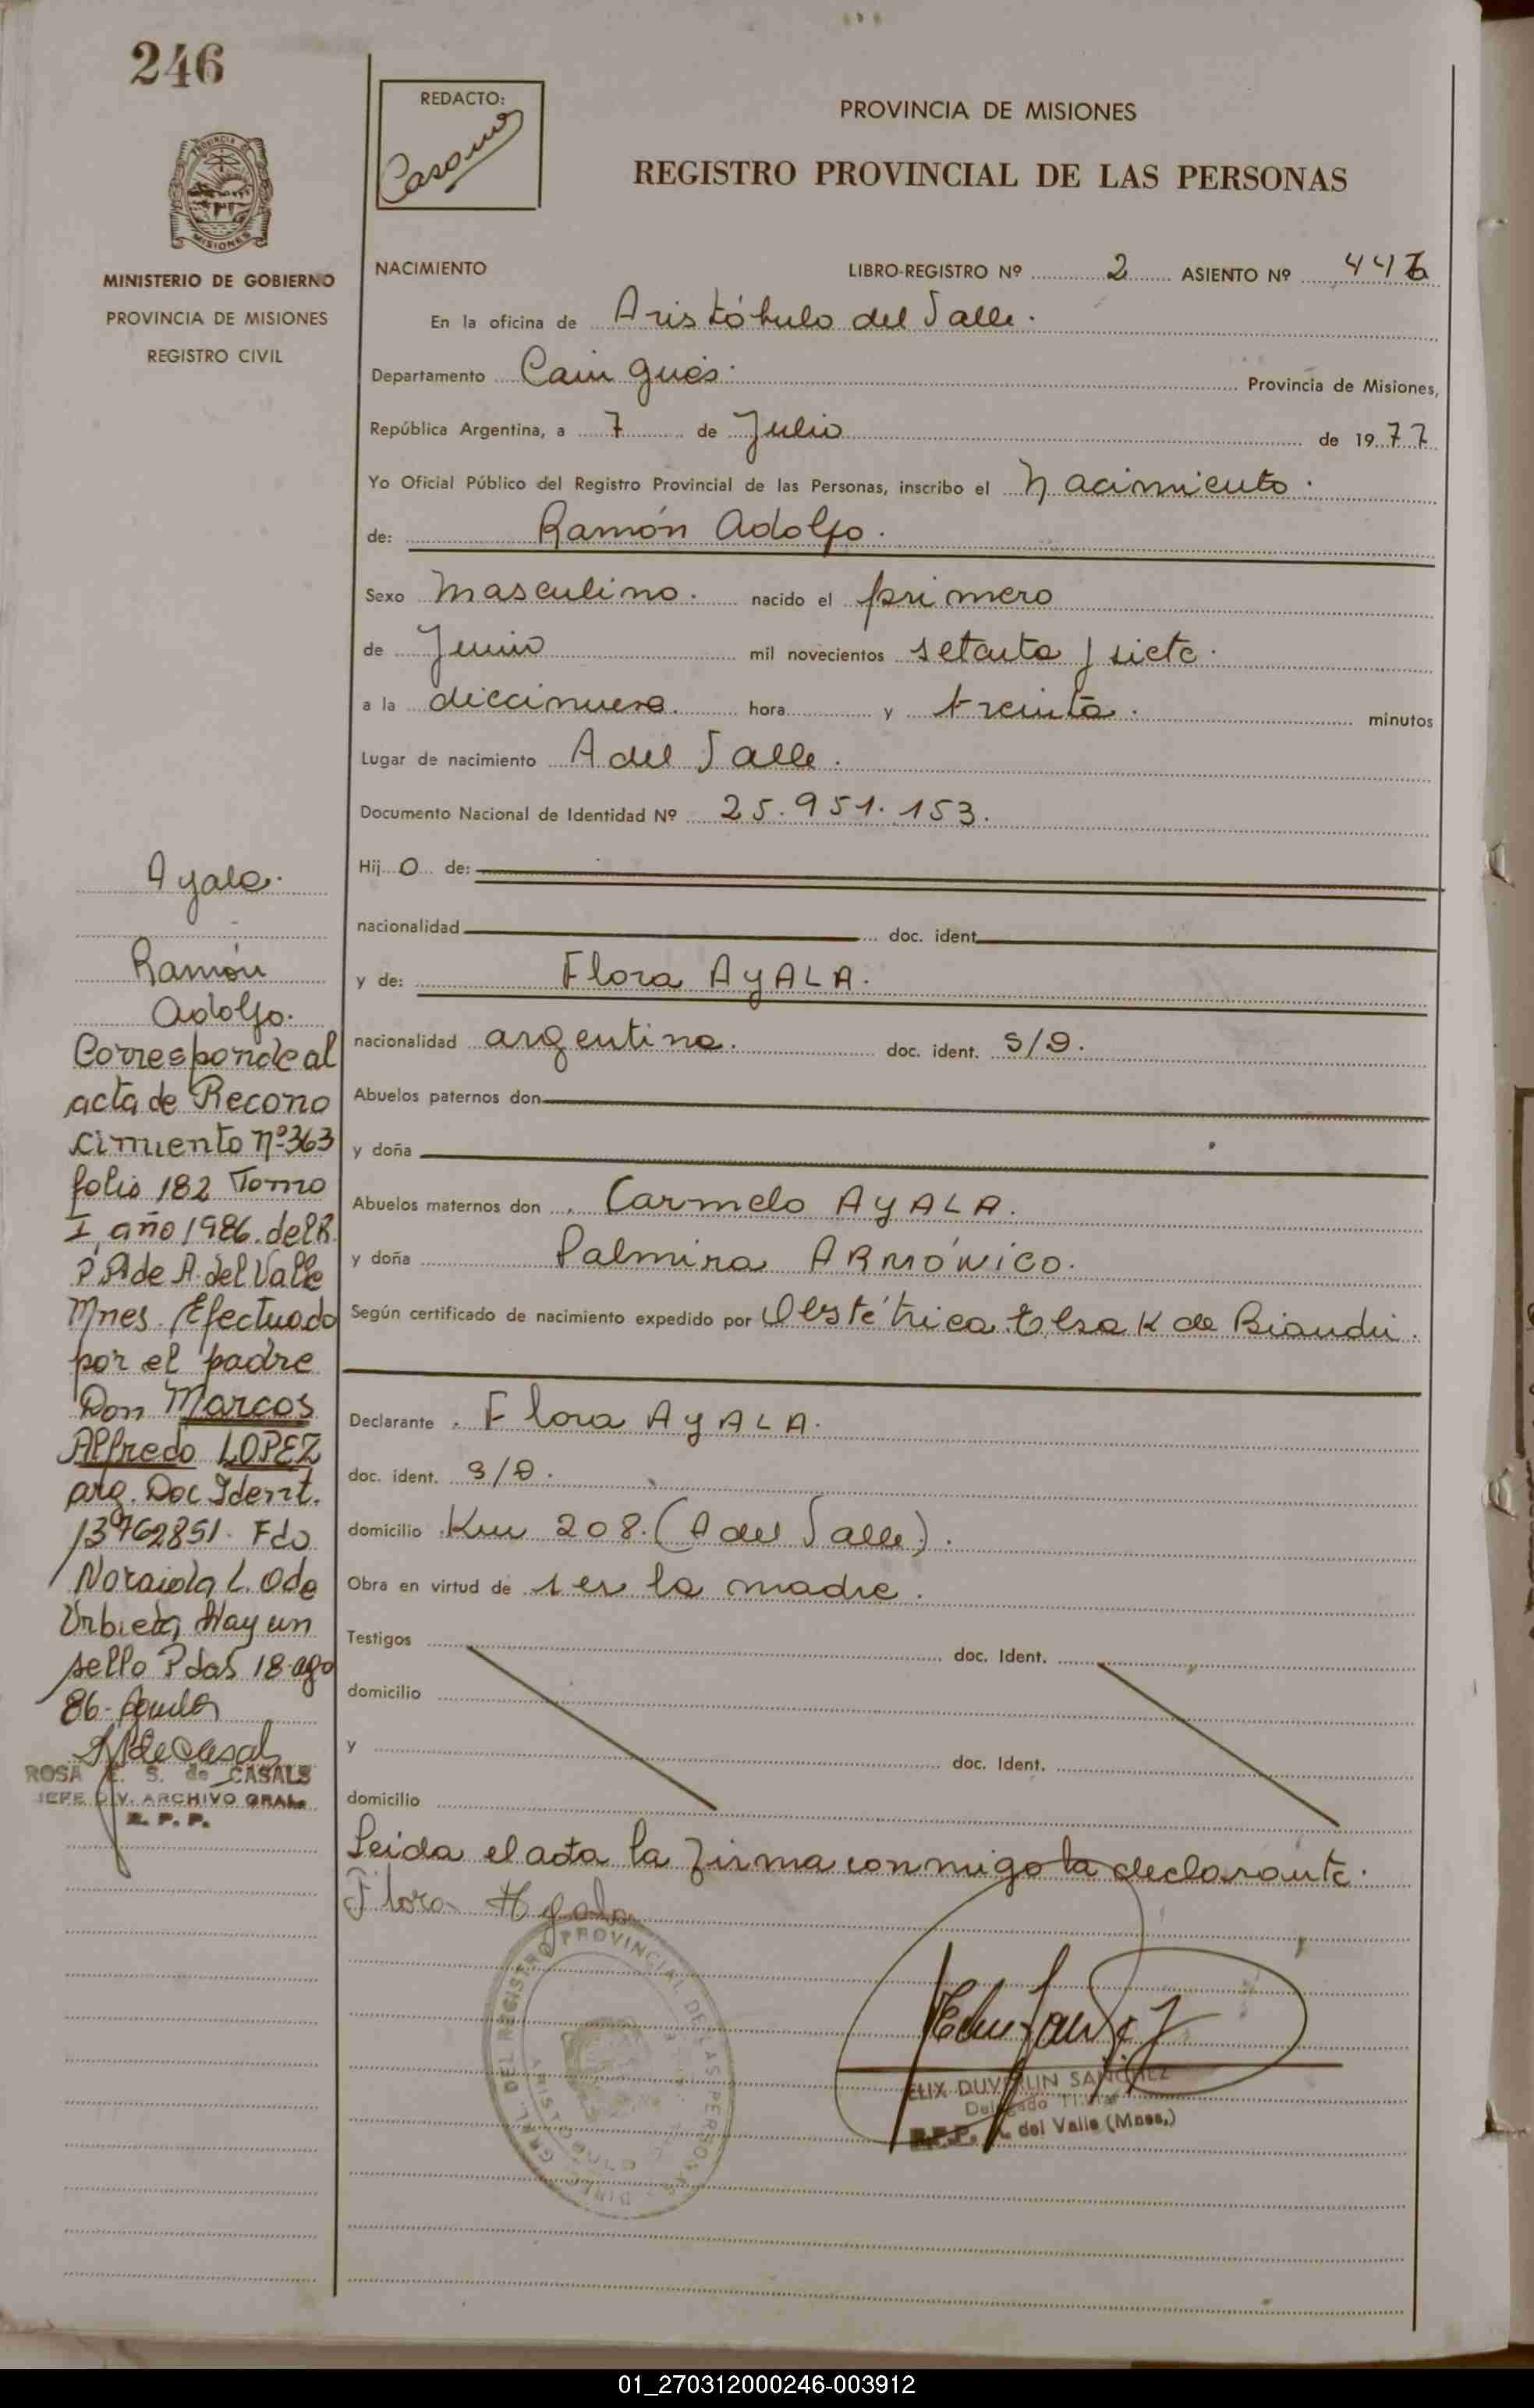 246
PROVINCIA DE
MISIONES
MINISTERIO DE GOBIERNO
PROVINCIA DE MISIONES
REGISTRO CIVIL
REDACTO:
PROVINCIA DE MISIONES
REGISTRO PROVINCIAL DE LAS PERSONAS
NACIMIENTO LIBRO-REGISTRO Nº 2 ASIENTO Nº 446
En la oficina de Aristóbulo del Valle.
Departamento Cain guás. Provincia de Misiones,
República Argentina, a 7 de Julio de 1977
Yo Oficial Público del Registro Provincial de las Personas, inscribo el Nacimiento.
de: Ramón Adolfo.
Sexo Masculino. nacido el primero
de Junio mil novecientos setenta y siete.
a la diecinueve. hora y treinta. minutos
Lugar de nacimiento A del Valle.
Documento Nacional de Identidad Nº 25.951.153.
Hij o de:
nacionalidad doc. ident.
y de: Flora AYALA.
nacionalidad argentina. doc. ident. S/D.
Abuelos paternos don
y doña
Abuelos maternos don Carmelo AYALA.
y doña Palmira ARMÓNICO.
Según certificado de nacimiento expedido por Obstétrica Elsa K de Biondi.
Declarante Flora AYALA.
doc. ident. S/D.
domicilio Km 208. (A del Valle).
Obra en virtud de ser la madre.
Testigos doc. Ident.
domicilio
y doc. Ident.
domicilio
Leida el acta la firma conmigo la declarante.
Flora Ayala
DIREC. GRAL. DEL REGISTRO PROVINCIAL DE LAS PERSONAS
ELIX DUVERLIN SANCHEZ
Delegado Titular
R.P.P. A. del Valle (Mnes.)
Ayala.
Ramón
Adolfo.
Corresponde al
acta de Recono
cimiento nº 363
folio 182 Tomo
I año 1986. del R.
P.P. de A. del Valle
Mnes. Efectuado
por el padre
Don Marcos
Alfredo LOPEZ
arg. Doc Ident.
13762851. Fdo
L. O de
Urbieta, Hay un
sello Pdas 18-ago
86-
ROSA E. S. de CASALS
JEFE DIV. ARCHIVO GRAL.
R. P. P.
01_270312000246-003912